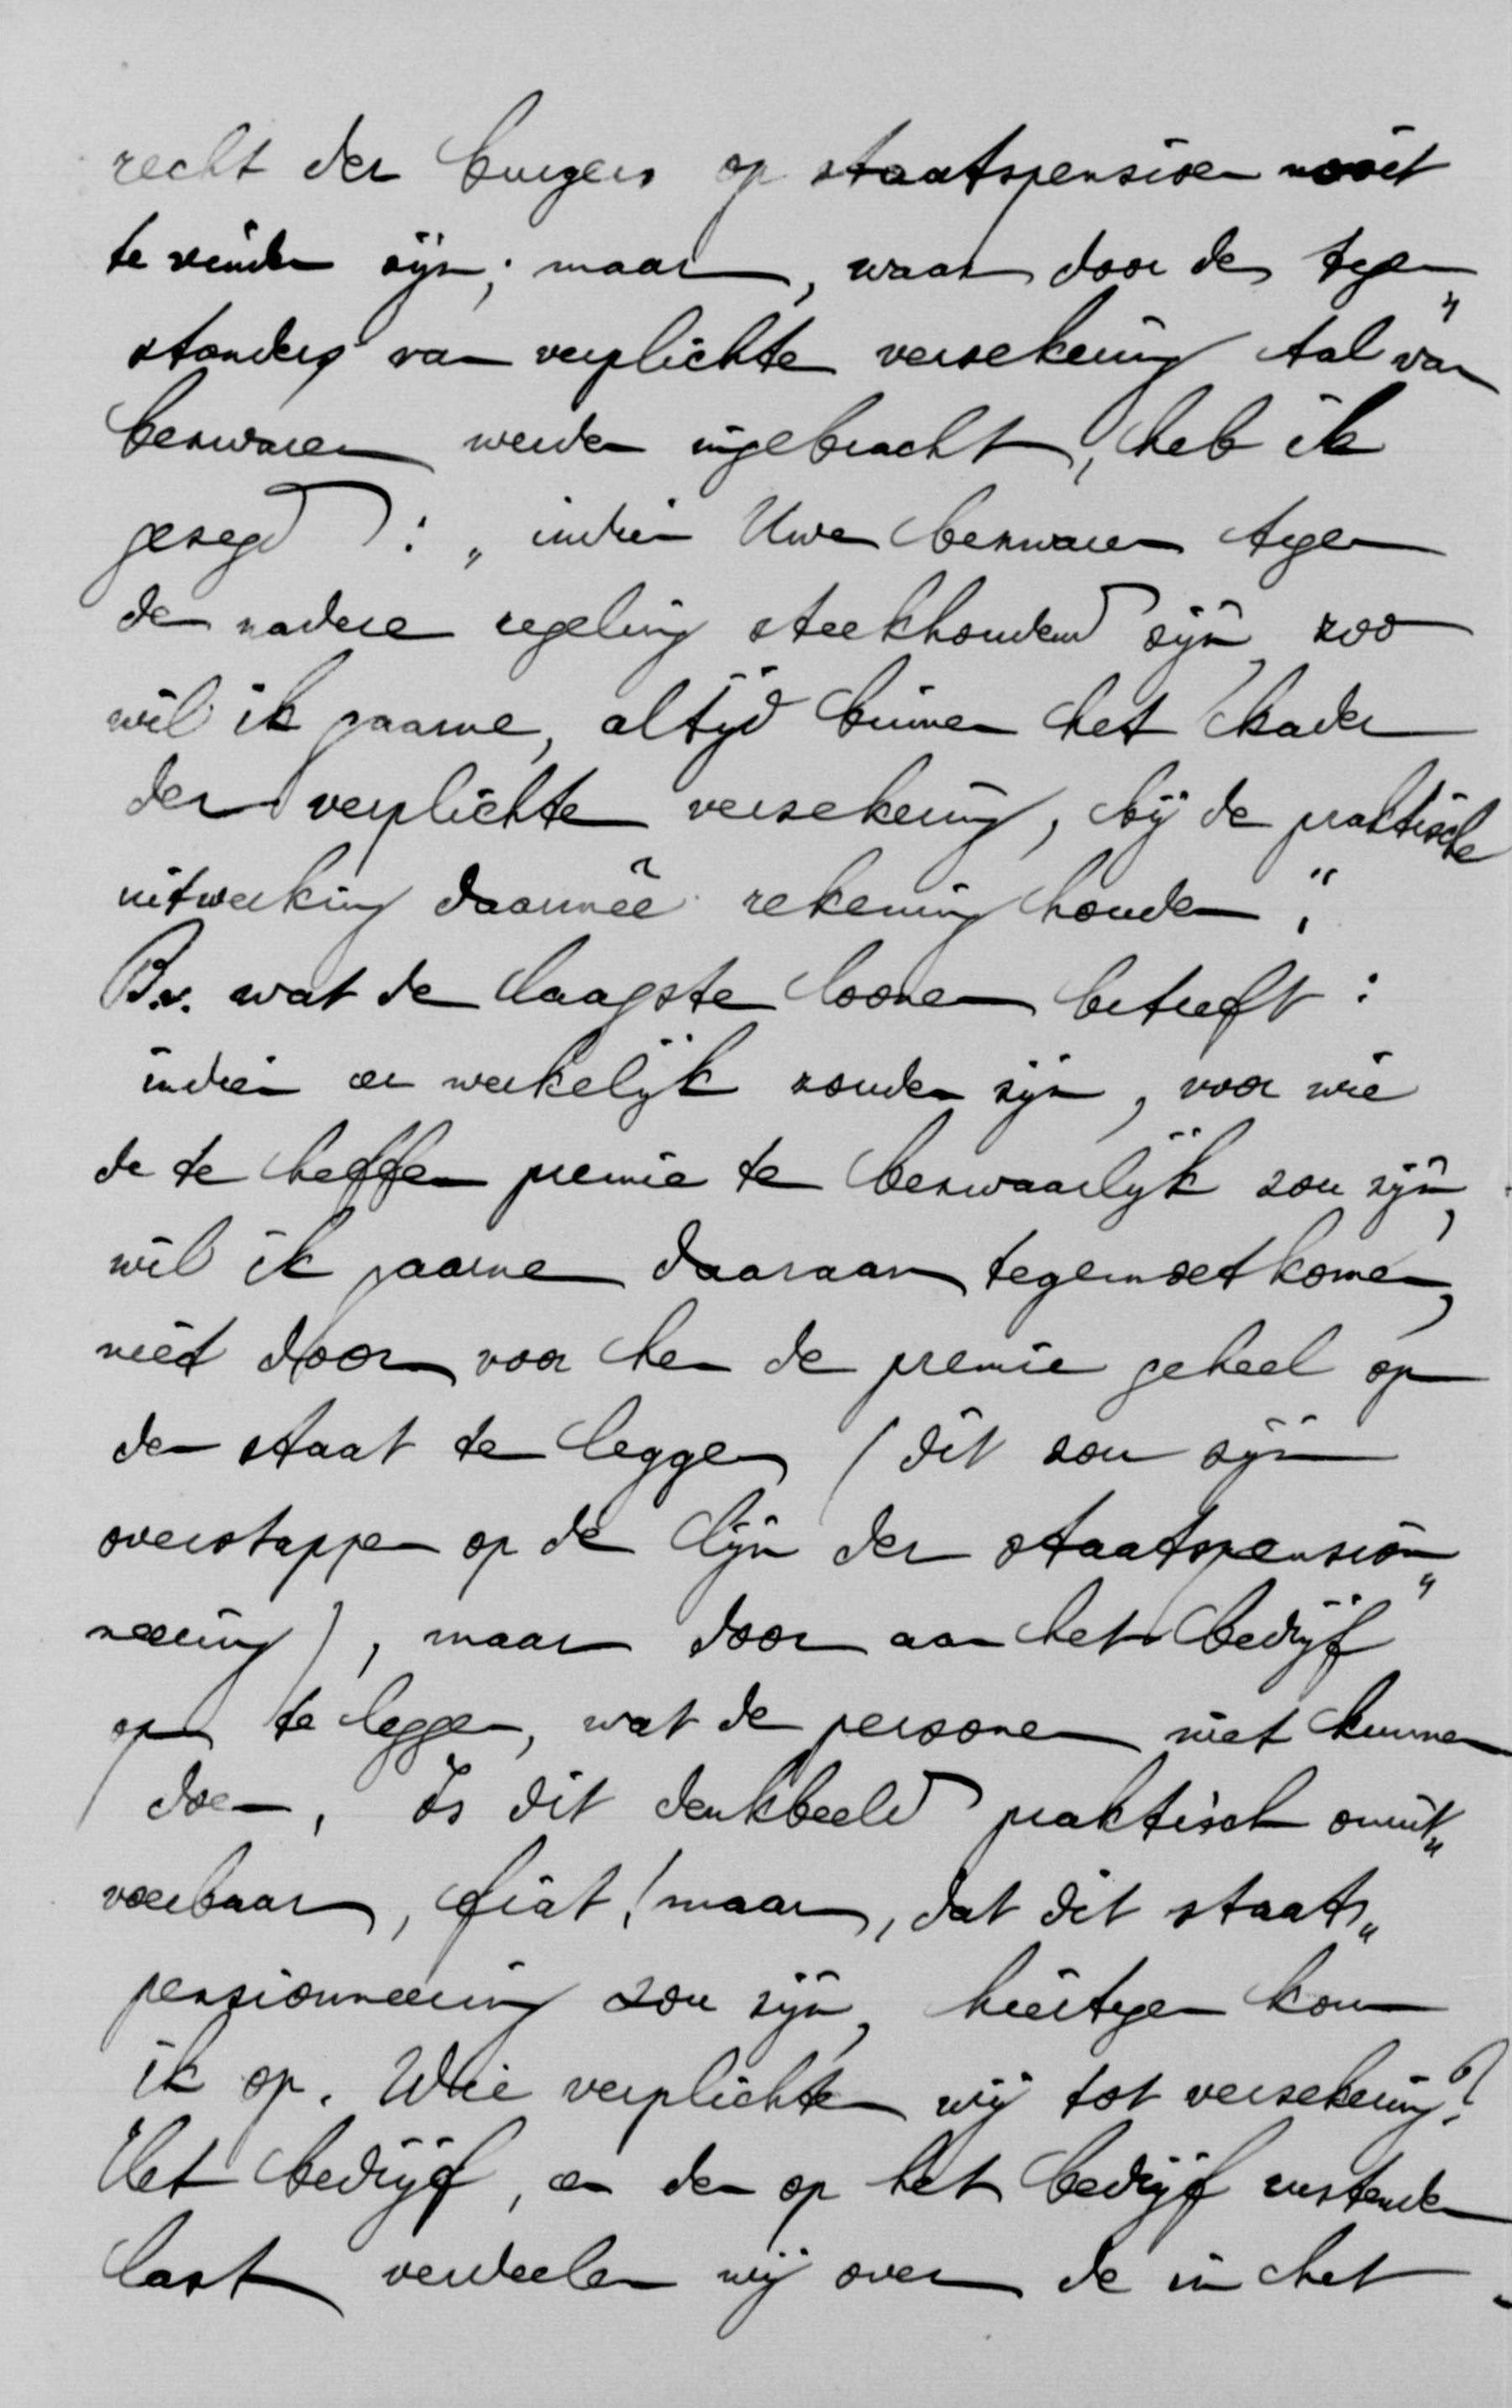 recht der burgers op staatspensioen nooit
te vinden zijn; maar, waar door de tegen„
standers van verplichte verzekering tal van
bezwaren werden ingebracht, heb ik
gezegd: „indien Uwe bezwaren tegen
de nadere regeling steekhoudend zijn, zoo
wil ik gaarne, altijd binnen het kader
der verplichte verzekering, bij de praktische
uitwerking daarmêe rekening houden".
B.v. wat de laagste loonen betreft:
indien er werkelijk zouden zijn, voor wie
de te heffen premie te bezwaarlijk zou zijn,
wil ik gaarne daaraan tegemoetkomen,
niet door voor hen de premie geheel op
den staat te leggen (dit zou zijn
overstappen op de lijn der staatspension„
neering), maar door aan het bedrijf
op te leggen, wat de personen niet kunnen
doen. Is dit denkbeeld praktisch onuit„
voerbaar, fiat! maar, dat dit staats„
pensionneering zou zijn, hiertegen kom
ik op. Wie verplichten wij tot verzekering?
Het bedrijf, en den op het bedrijf rustenden
last verdeelen wij over de in het